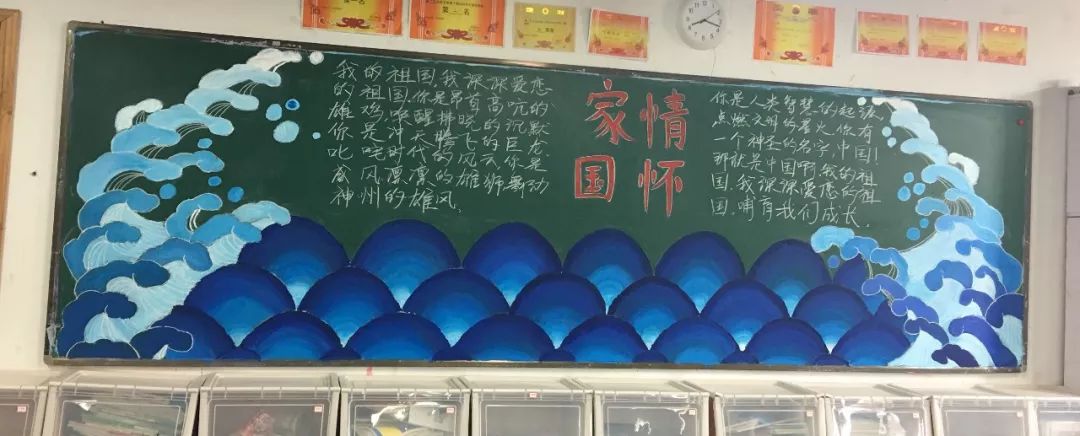 第一名
第一名
我的祖国,我深深爱恋
的祖国.你是昂首高吭的
雄鸡.唤醒拂晓的沉默
你是冲天腾飞的巨龙
叱咤时代的风云你是
威风凛凛的雄狮舞动
神州的雄风.
家国
情怀
你是人类智慧的起源,
点燃文明的星火,你有
一个神圣的名字,中国!
那就是中国啊,我的祖
国.我深深爱恋的祖
国.哺育我们成长.